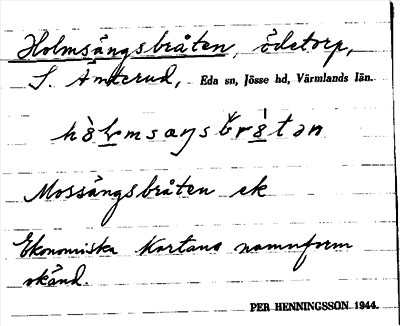 Holmsängsbråten, ödetorp,
S. Ämterud, Eda sn, Jösse hd, Värmlands län.
Mossängsbråten ek
Ekonomiska Kartans namnform
okänd.
PER HENNINGSSON 1944.